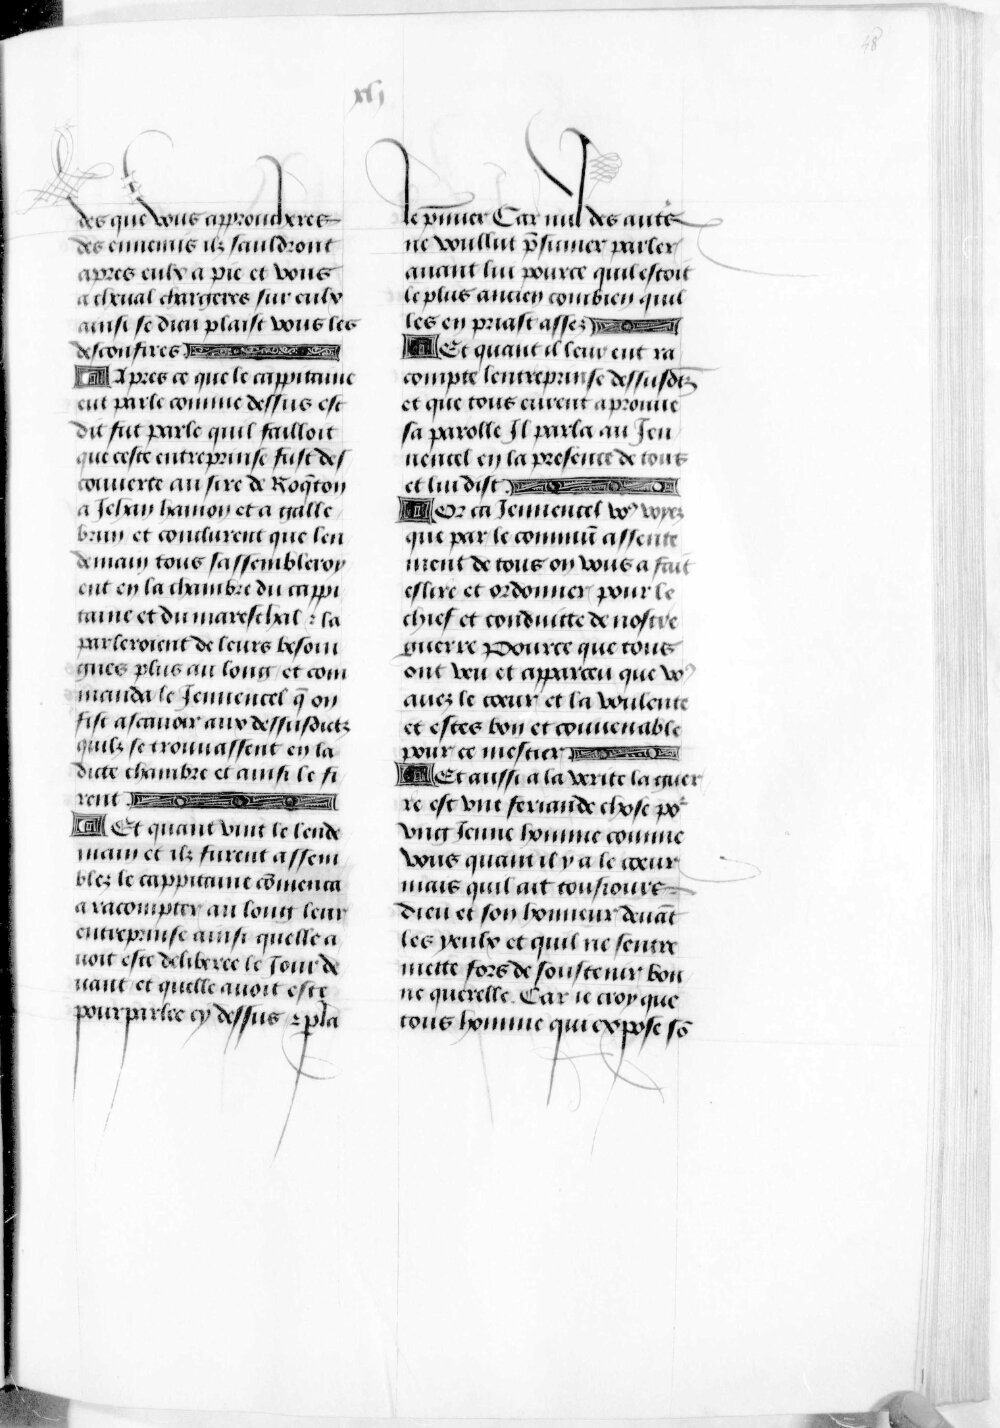 48
xlj
des que vous approucheres
des ennemis ilz sauldront
apres eulx a pie et vous
a cheual chargeres sur eulx
ainsi se dieu plaist vous les
desconfires
Apres ce que le cappitaine
eut parle comme dessus est
dit fut parle quil failloit
que ceste entreprinse fust des
couuerte au sire de Roq̃ton
a Jehan hamon et a galle
brun et conclurent que len
demain tous sassembleroy
ent en la chambre du cappi
taine et du mareschal ⁊ la
parleroient de leurs besoin
gnes plus au long et com
manda le Jennencel q̃ on
fist ascauoir aux dessusdictz
quilz se trouuassent en la
dicte chambre et ainsi le fi
rent
Et quant vint le lende
main et ilz furent assem
blez le cappitaine cõmenca
a racompter au long leur
entreprinse ainsi quelle a
uoit este deliberee le Jour de
uant et quelle auoit este
pourparlee cy dessus ⁊ pla
le p̃mier Car nul des autẽs
ne voullut p̃sumer parler
auant lui pource quil estoit
le plus ancien combien quil
les en priast assez
Et quant il leur eut ra
compte lentreprinse dessusd̃z
et que tous eurent aprouue
sa parolle Il parla au Jen
nencel en la presence de tous
et lui dist
Or ca Jennencel voꝰ voyez
que par le commũ assente
ment de tous on vous a fait
eslire et ordonner pour le
chief et conduitte de nostre
guerre Pource que tous
ont veu et apparceu que voꝰ
auez le cœur et la voulente
et estes bon et conuenable
pour ce mestier
Et aussi a la verite la guer
re est vne friande chose po͛
vng Jenne homme comme
vous quant il y a le cœur
mais quil ait tousiours
dieu et son honneur deuãt
les yeulx et quil ne sentre
mette fors de soustenir bon
ne querelle. Car ie croy que
tous homme qui expose sõ